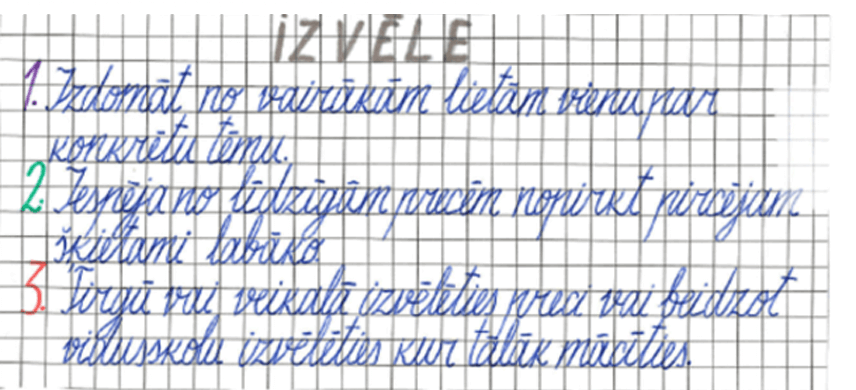 IZVĒLE
1. Izdomāt no vairākām lietām vienu par
konkrētu tēmu.
2. Iespēja no līdzīgām precēm nopirkt pircējam
šķietami labāko.
3. Tirgū vai veikalā izvēlēties preci vai beidzot
vidusskolu izvēlēties kur tālāk mācīties.